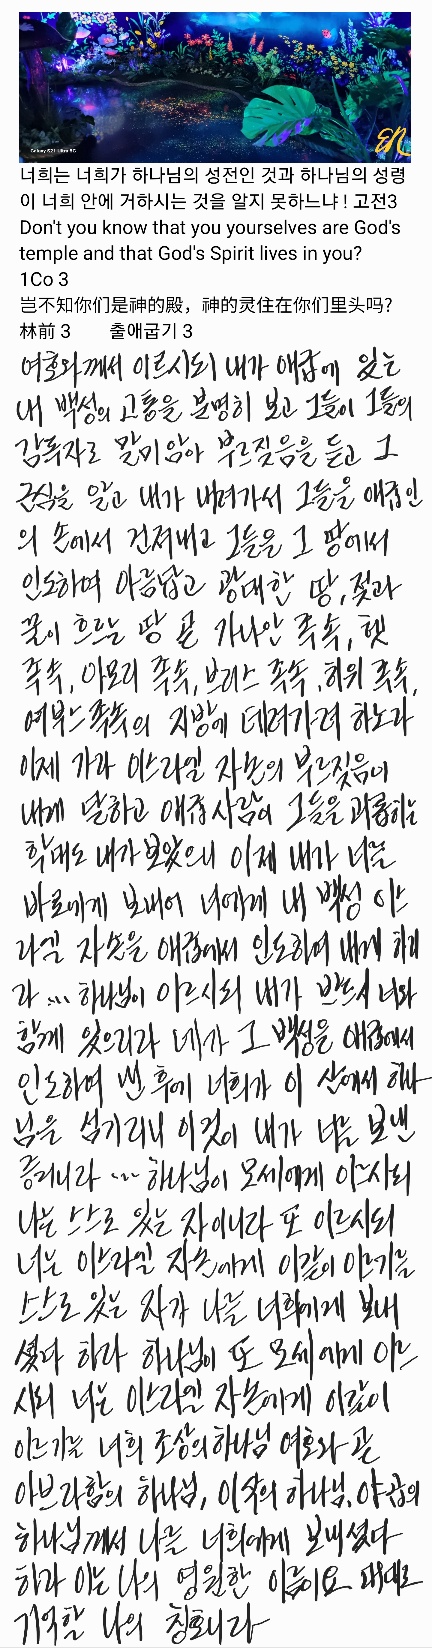 Galaxy S21 Ultra 5G
EN
너희는 너희가 하나님의 성전인 것과 하나님의 성령
이 너희 안에 거하시는 것을 알지 못하느냐 ! 고전3
Don't you know that you yourselves are God's
temple and that God's Spirit lives in you?
1Co 3
岂不知你们是神的殿，神的灵住在你们里头吗?
林前 3 출애굽기 3
여호와께서 이르시되 내가 애굽에 있는
내 백성의 고통을 분명히 보고 그들이 그들의
감독자로 말미암아 부르짖음을 듣고 그
근심을 알고 내가 내려가서 그들을 애굽인
의 손에서 건져내고 그들을 그 땅에서
인도하여 아름답고 광대한 땅, 젖과
꿀이 흐르는 땅 곧 가나안 족속, 헷
족속, 아모리 족속, 브리스 족속, 히위 족속,
여부스 족속의 지방에 데려가려 하노라
이제 가라 이스라엘 자손의 부르짖음이
내게 달하고 애굽 사람이 그들을 괴롭히는
학대도 내가 보았으니 이제 내가 너를
바로에게 보내어 너에게 내 백성 이스
라엘 자손을 애굽에서 인도하여 내게 하리
라 ... 하나님이 이르시되 내가 반드시 너와
함께 있으리라 네가 그 백성을 애굽에서
인도하여 낸 후에 너희가 이 산에서 하나
님을 섬기리니 이것이 내가 너를 보낸
증거니라 ... 하나님이 모세에게 이르시되
나는 스스로 있는 자이니라 또 이르시되
너는 이스라엘 자손에게 이같이 이르기를
스스로 있는 자가 나를 너희에게 보내
셨다 하라 하나님이 또 모세에게 이르
시되 너는 이스라엘 자손에게 이같이
이르기를 너희 조상의 하나님 여호와 곧
아브라함의 하나님, 이삭의 하나님, 야곱의
하나님께서 나를 너희에게 보내셨다
하라 이는 나의 영원한 이름이요 대대로
기억할 나의 칭호니라